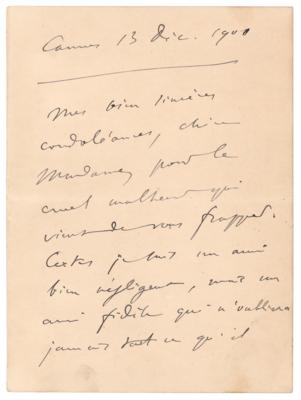 Cannes 13 Déc. 1900
Mes bien sincères
condoléances, chère
Madame, pour le
cruel malheur qui
vient de vous frapper.
Certes je suis un ami
bien négligent, mais un
ami fidèle qui n'oubliera
jamais tout ce qu'il